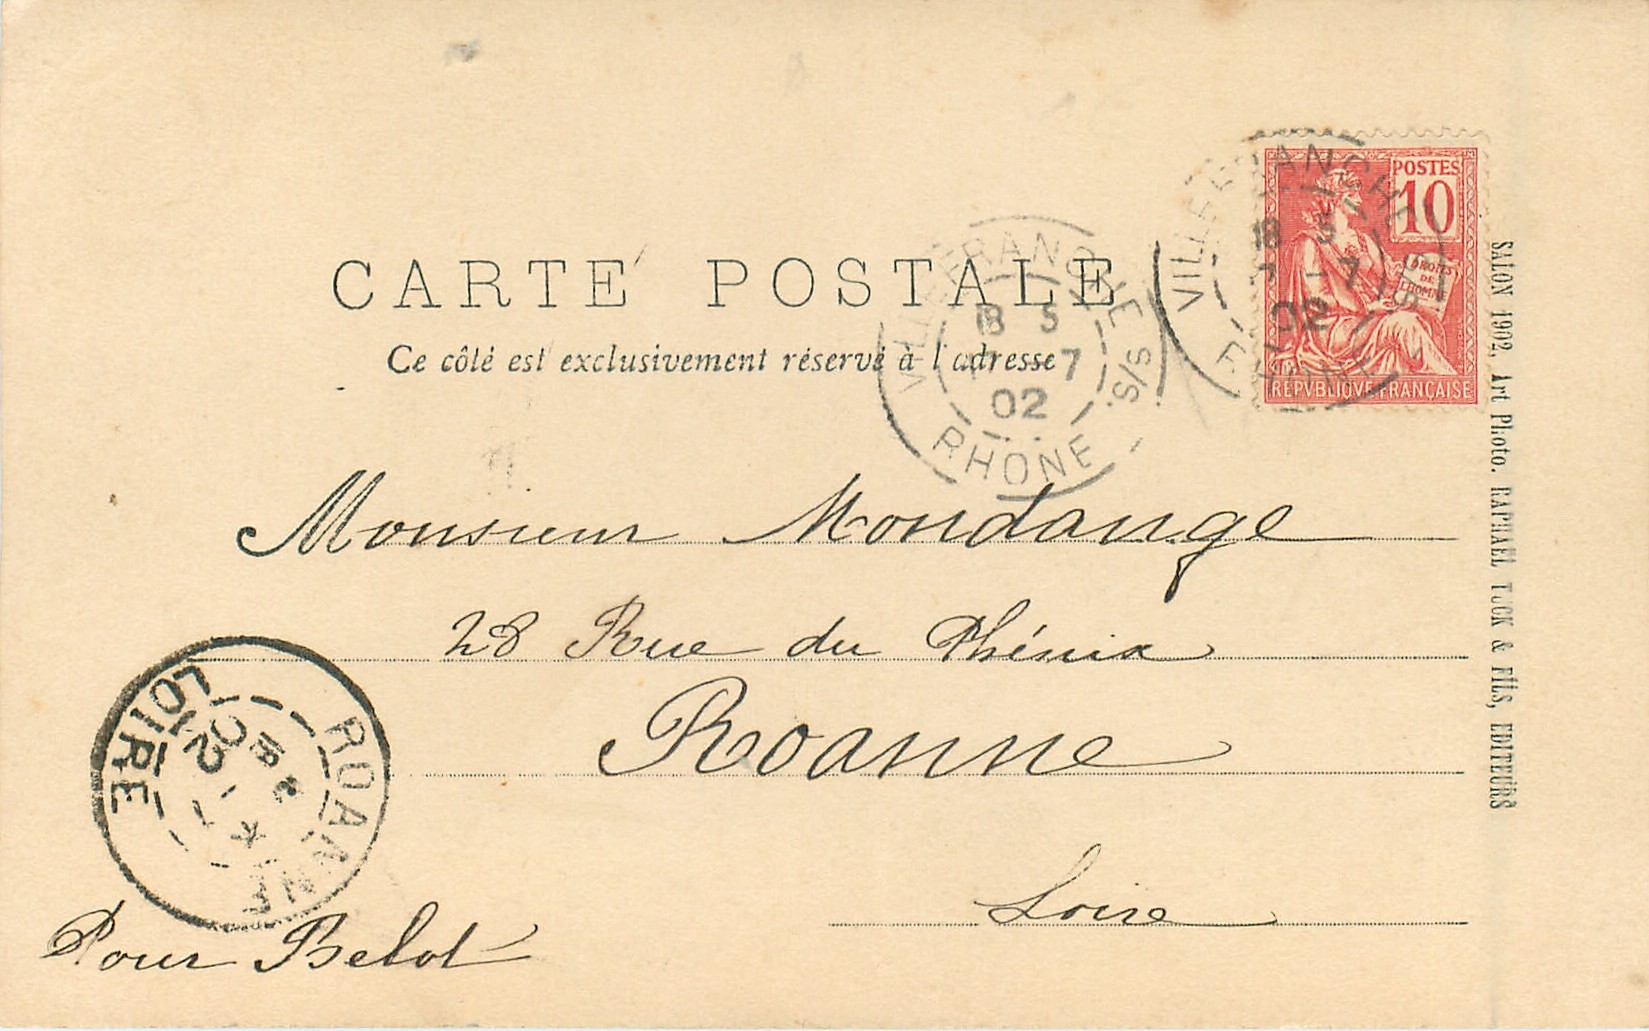 CARTE POSTALE
Ce côté est exclusivement réservé à l'adresse
POSTES
10
DROITS
DE
L'HOMME
RÉPVBLIQVE FRANÇAISE
VILLEFRANCHE S/S
18 5
7
02
RHONE
VILLEFRANCHE
18 5
7
02
RHONE
SALON 1902, Art Photo. RAPHAEL TUCK & FILS, EDITEURS
Monsieur Mondange
28 Rue du Phénix
Roanne
Loire
ROANNE
02
LOIRE
Pour Belot